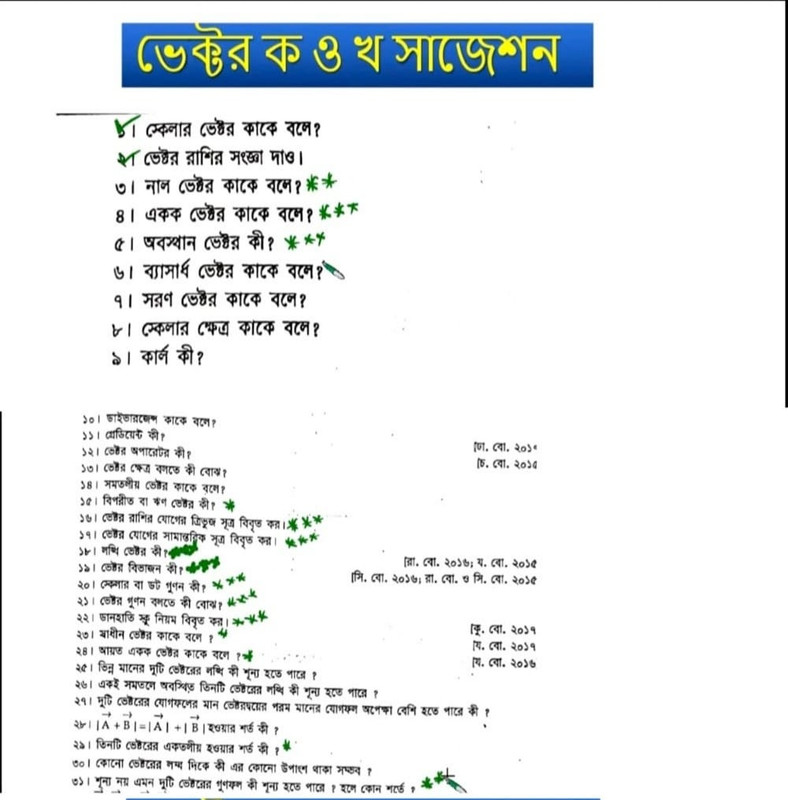 ভেক্টর ক ও খ সাজেশন
১। স্কেলার ভেক্টর কাকে বলে?
২। ভেক্টর রাশির সংজ্ঞা দাও।
৩। নাল ভেক্টর কাকে বলে?
৪। একক ভেক্টর কাকে বলে?
৫। অবস্থান ভেক্টর কী?
৬। ব্যাসার্ধ ভেক্টর কাকে বলে?
৭। সরণ ভেক্টর কাকে বলে?
৮। স্কেলার ক্ষেত্র কাকে বলে?
৯। কার্ল কী?
১০। ডাইভারজেন্স কাকে বলে?
১১। গ্রেডিয়েন্ট কী?
১২। ভেক্টর অপারেটর কী? [ঢা. বো. ২০১
১৩। ভেক্টর ক্ষেত্র বলতে কী বোঝ? [চ. বো. ২০১৫
১৪। সমতলীয় ভেক্টর কাকে বলে?
১৫। বিপরীত বা ঋণ ভেক্টর কী?
১৬। ভেক্টর রাশির যোগের ত্রিভুজ সূত্র বিবৃত কর।
১৭। ভেক্টর যোগের সামান্তরিক সূত্র বিবৃত কর।
১৮। লব্ধি ভেক্টর কী?
১৯। ভেক্টর বিভাজন কী? [রা. বো. ২০১৬; য. বো. ২০১৫
২০। স্কেলার বা ডট গুণন কী? [সি. বো. ২০১৬; রা. বো. ও সি. বো. ২০১৫
২১। ভেক্টর গুণন বলতে কী বোঝ?
২২। ডানহাতি স্ক্রু নিয়ম বিবৃত কর।
২৩। স্বাধীন ভেক্টর কাকে বলে ? [কু. বো. ২০১৭
২৪। আয়ত একক ভেক্টর কাকে বলে ? [য. বো. ২০১৭
২৫। ভিন্ন মানের দুটি ভেক্টরের লব্ধি কী শূন্য হতে পারে ? [য. বো. ২০১৬
২৬। একই সমতলে অবস্থিত তিনটি ভেক্টরের লব্ধি কী শূন্য হতে পারে ?
২৭। দুটি ভেক্টরের যোগফলের মান ভেক্টরদ্বয়ের পরম মানের যোগফল অপেক্ষা বেশি হতে পারে কী ?
২৮। |A⃗ + B⃗| = |A⃗| + |B⃗| হওয়ার শর্ত কী ?
২৯। তিনটি ভেক্টরের একতলীয় হওয়ার শর্ত কী ?
৩০। কোনো ভেক্টরের লম্ব দিকে কী এর কোনো উপাংশ থাকা সম্ভব ?
৩১। শূন্য নয় এমন দুটি ভেক্টরের গুণফল কী শূন্য হতে পারে ? হলে কোন শর্তে ?